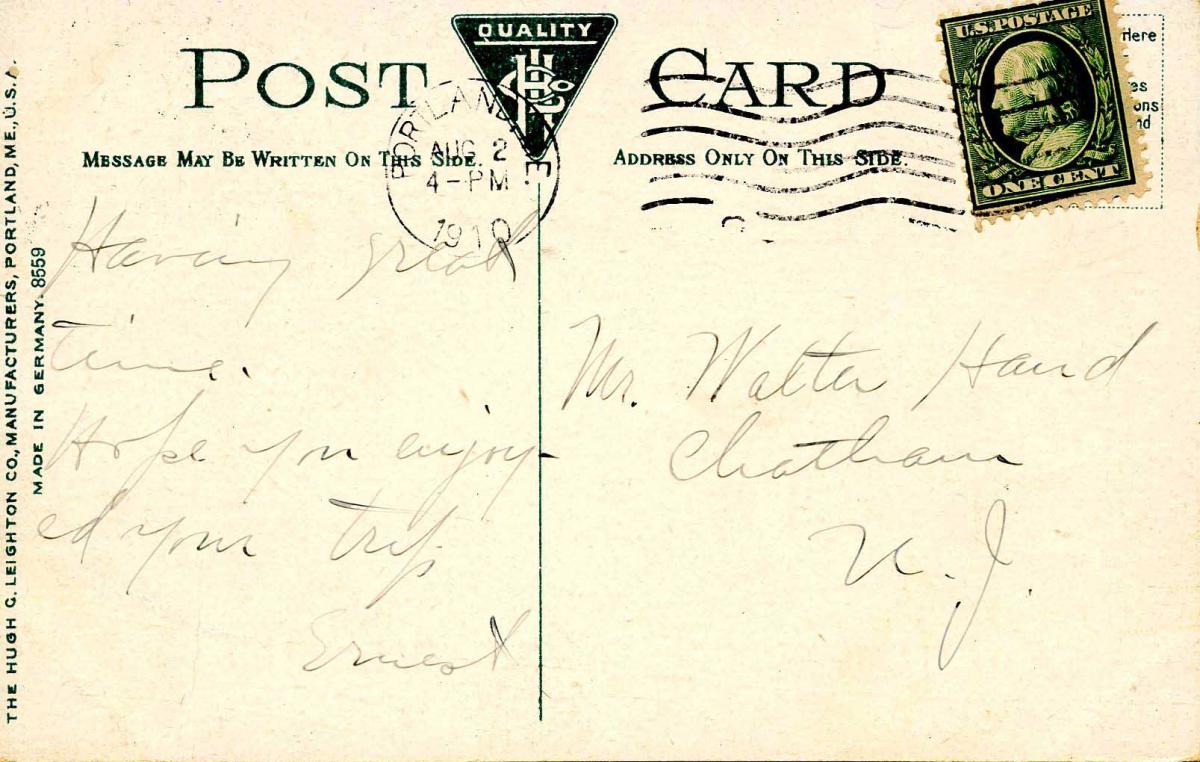 POST CARD
QUALITY
HL Co
MESSAGE MAY BE WRITTEN ON THIS SIDE.
ADDRESS ONLY ON THIS SIDE.
PORTLAND, E
AUG 2
4-PM
1910
U.S. POSTAGE
ONE CENT
Here
Having great
time.
Hope you enjoy-
ed your trip
Ernest
Mr. Walter Hand
Chatham
N. J.
THE HUGH C. LEIGHTON CO., MANUFACTURERS, PORTLAND, ME., U.S.A.
MADE IN GERMANY. 8559